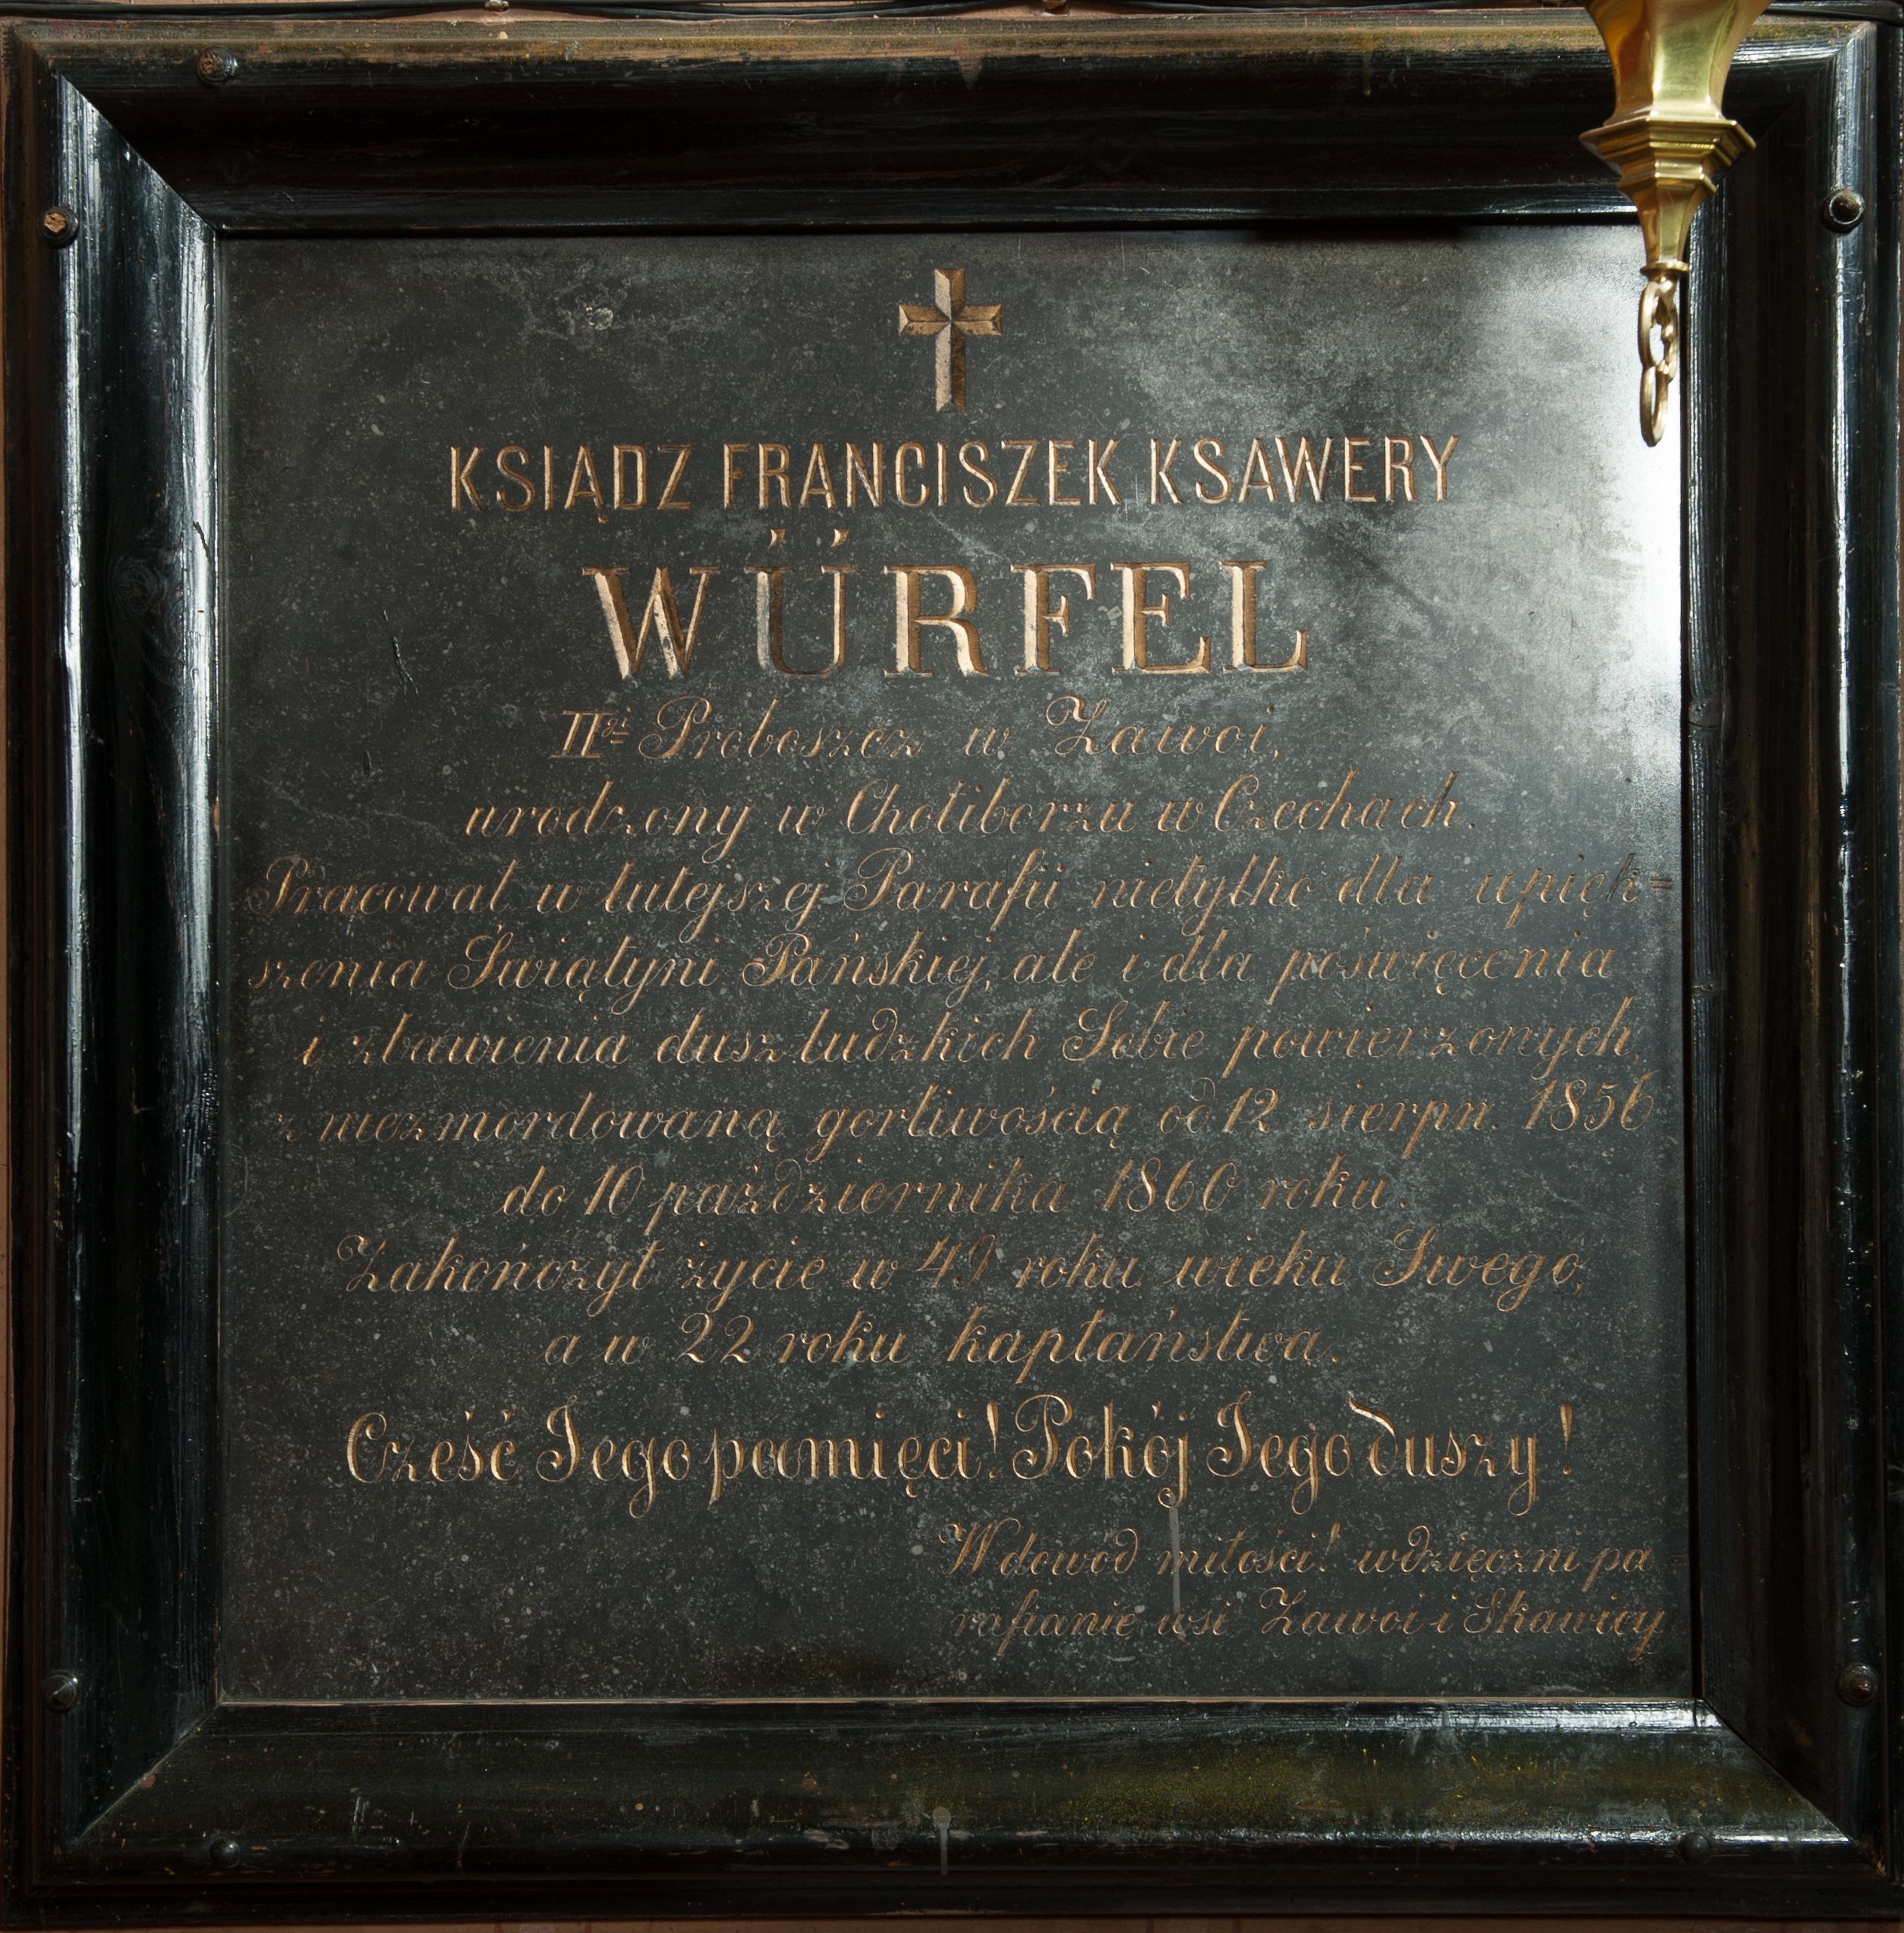 KSIĄDZ FRANCISZEK KSAWERY
WÜRFEL
IIgi Proboszcz w Zawoi,
urodzony w Chotiborzu w Czechach.
Pracował w tutejszej Parafii nietylko dla upięk=
szenia Świątyni Pańskiej, ale i dla poświęcenia
i zbawienia dusz ludzkich Sobie powierzonych,
z niezmordowaną gorliwością od 12 sierpn. 1856
do 10 października 1860 roku.
Zakończył życie w 49 roku wieku Swego,
a w 22 roku kapłaństwa.
Cześć Jego pamięci! Pokój Jego duszy!
W dowód miłości! wdzięczni pa=
rafianie wsi Zawoi i Skawicy